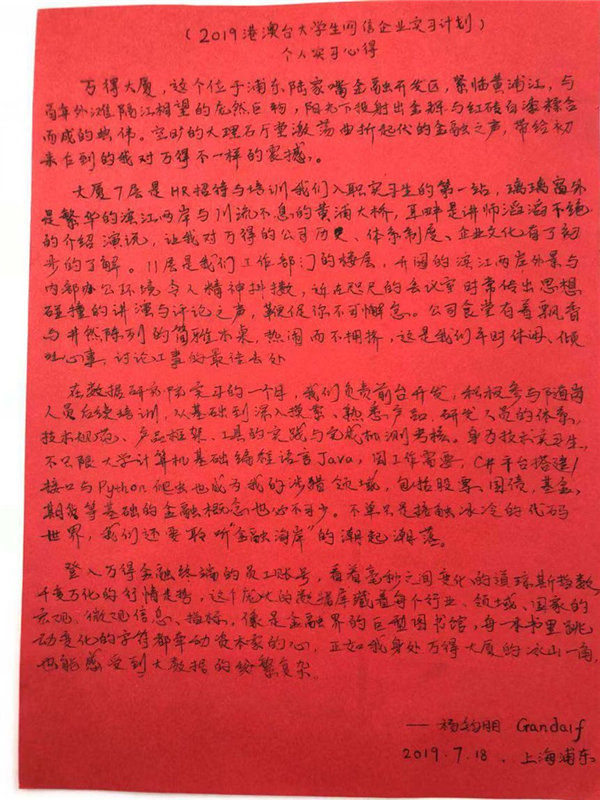 （2019港澳台大学生网信企业实习计划）
个人实习心得
万得大厦，这个位于浦东陆家嘴金融开发区，紧临黄浦江，与
百年外滩隔江相望的庞然巨物，阳光下投射出金辉与红砖白漆糅合
而成的雄伟。空旷的大理石厅堂激荡曲折起伏的金融之声，带给初
来乍到的我对万得不一样的震撼。
大厦7层是HR招待与培训我们入职实习生的第一站，玻璃窗外
是繁华的滨江两岸与川流不息的黄浦大桥，耳畔是讲师滔滔不绝
的介绍演说，让我对万得的公司历史、体系制度、企业文化有了初
步的了解。11层是我们工作部门的楼层，开阔的滨江两岸外景与
内部办公环境令人精神抖擞，近在咫尺的会议室时常传出思想
碰撞的讲演与评论之声，鞭促你不可懈怠。公司食堂有着飘香
与井然陈列的简雅木桌，热闹而不拥挤，这是我们平时休闲、倾
吐心事，讨论工事的最佳去处
在数据研究院实习的一个月，我们负责前台开发，积极参与下随岗
人员后续培训，从基础到深入摸索、熟悉产品研发人员的体系，
技术规范、产品框架、工具的实践与完成机测考核。身为技术实习生，
不只限大学计算机基础编程语言Java，因工作需要，C#平台搭建/
接口与Python爬虫也成为我的涉猎领域，包括股票、国债，基金，
期货等基础的金融概念也必不可少。不单只是接触冰冷的代码
世界，我们还要聆听“金融海岸”的潮起潮落。
登入万得金融终端的员工账号，看着毫秒之间变化的道琼斯指数
千变万化的行情走势，这个庞大的数据库藏着每个行业、领域、国家的
宏观、微观信息、指标，像是金融界的巨型图书馆，每一本书里跳
动变化的字符都牵动资本家的心，正如我身处万得大厦的冰山一角，
也能感受到大数据的纷繁复杂。
——杨钧朋 Gandalf
2019.7.18，上海浦东